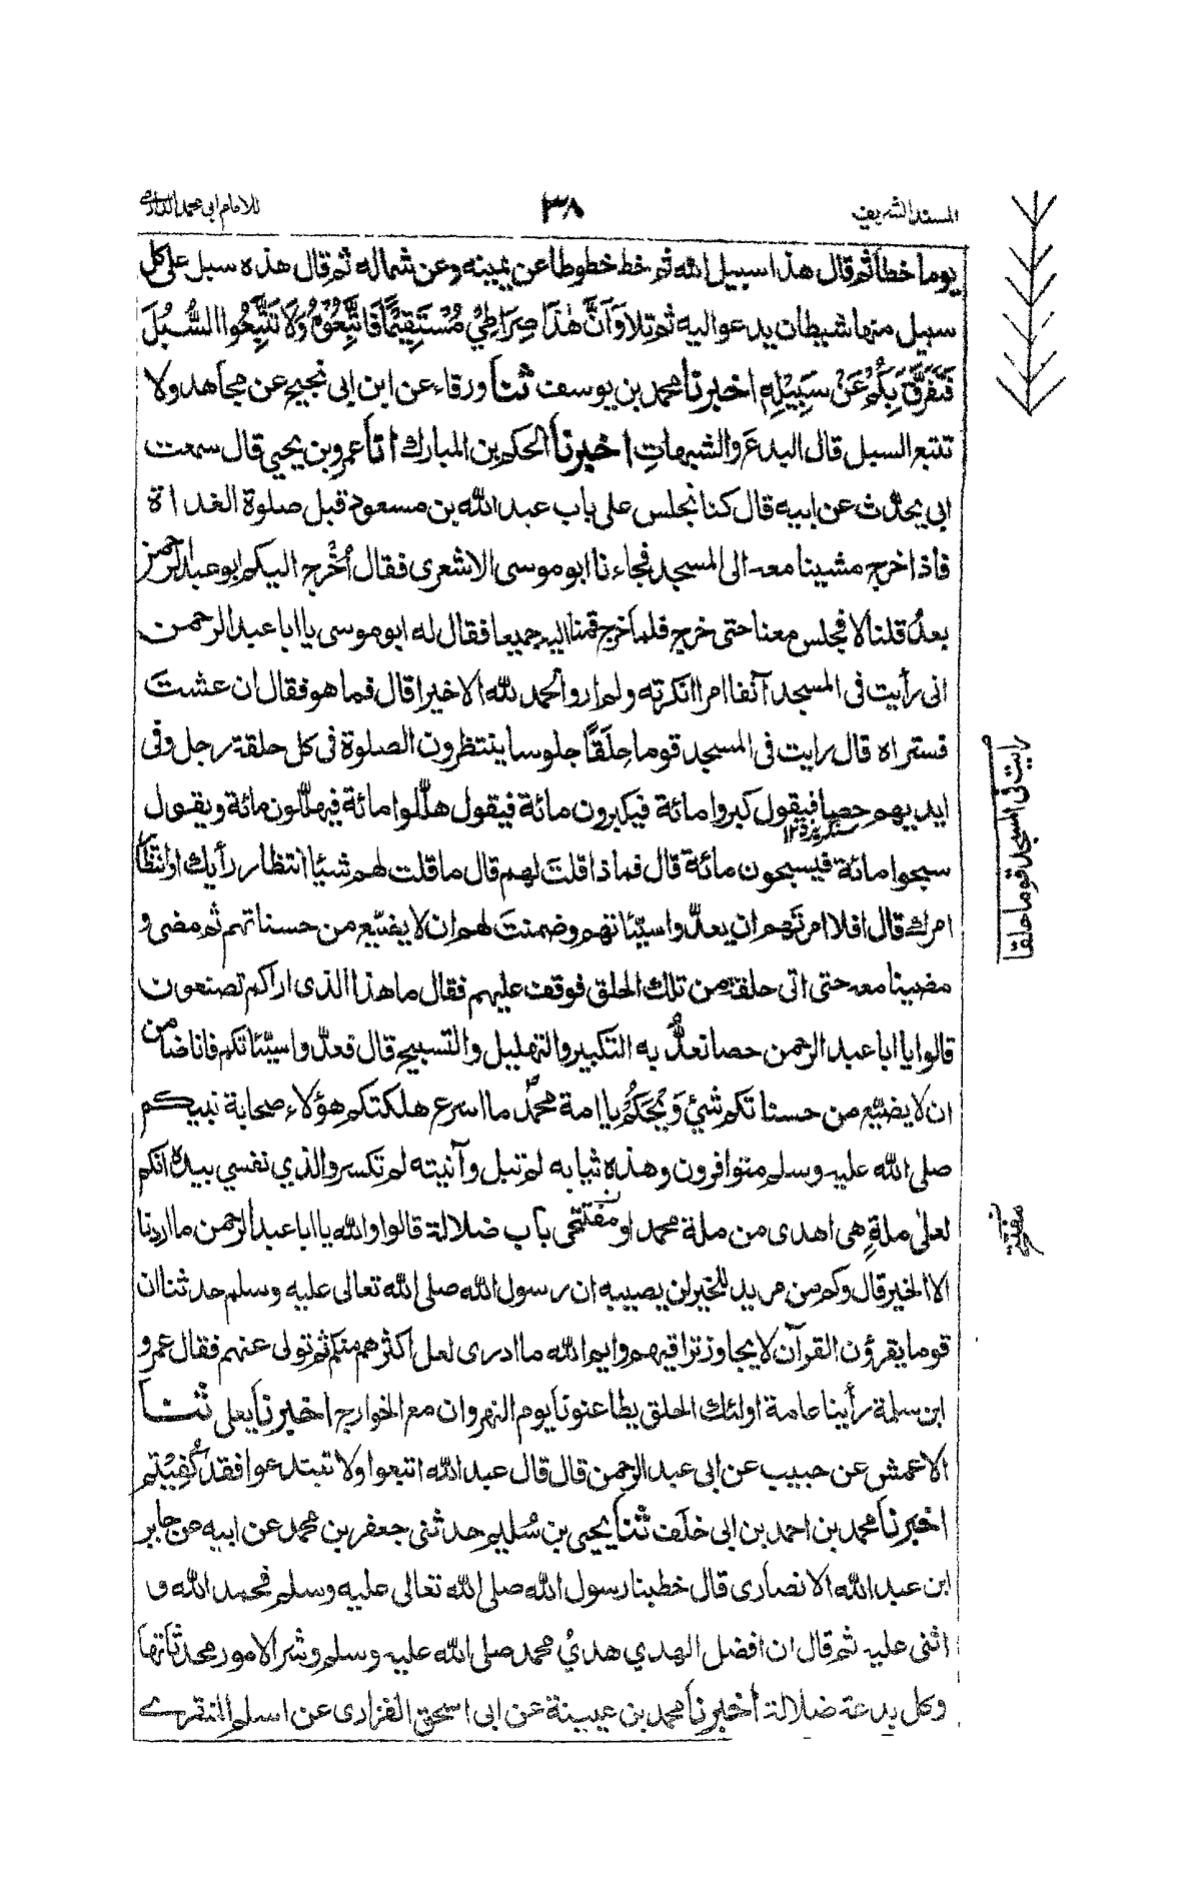 المسند الشريف
٣٨
للامام ابي محمد الدارمي
يوما خطا ثم قال هذا سبيل الله ثم خط خطوطا عن يمينه وعن شماله ثم قال هذه سبل على كل
سبيل منها شيطان يدعو اليه ثم تلا وَاَنَّ هٰذَا صِرَاطِيْ مُسْتَقِيْمًا فَاتَّبِعُوْهُ وَلَا تَتَّبِعُوا السُّبُلَ
فَتَفَرَّقَ بِكُمْ عَنْ سَبِيْلِهٖ اخبرنا محمد بن يوسف ثنا ورقاء عن ابن ابى نجيح عن مجاهد ولا
تتبع السبل قال البدعَ والشبهاتِ اخبرنا الحكم بن المبارك انا عمرو بن يحيى قال سمعت
ابى يحدّث عن ابيه قال كنا نجلس على باب عبد الله بن مسعود قبل صلوة الغداة
فاذا خرج مشينا معه الى المسجد فجاءنا ابو موسى الاشعرى فقال اَخَرج اليكم ابو عبد الرحمن
بعدُ قلنا لا فجلس معنا حتى خرج فلما خرج قمنا اليه جميعا فقال له ابو موسى يا ابا عبد الرحمن
انى رأيت فى المسجد آنفا امرا انكرته ولم ار والحمد لله الا خيرا قال فما هو فقال ان عشتَ
فستراه قال رايت فى المسجد قوما حِلَقًا جلوسا ينتظرون الصلوة فى كل حلقة رجل وفى
ايديهم حصا فيقول كبروا مائة فيكبرون مائة فيقول هلّلوا مائة فيهلّلون مائة ويقول
سنگريزه ١٢
سبحوا مائة فيسبحون مائة قال فماذا قلتَ لهم قال ما قلت لهم شيئا انتظار رأيك او انتظار
امرك قال افلا امرتهم ان يعدّوا سيّئاتهم وضمنتَ لهم ان لا يضيّع من حسناتهم ثم مضى و
مضينا معه حتى اتى حلقة من تلك الحلق فوقف عليهم فقال ما هذا الذى اراكم تصنعون
قالوا يا ابا عبد الرحمن حصا نعدُّ به التكبير والتهليل والتسبيح قال فعدّوا سيّئاتكم فانا ضامن
ان لا يضيّع من حسناتكم شيئ وَيْحَكُمْ يا امة محمدٍ ما اسرع هلكتكم هؤلاء صحابة نبيكم
صلى الله عليه وسلم متوافرون وهذه ثيابه لم تبل وآنيته لم تكسر والذي نفسي بيده انكم
لعلى ملةٍ هى اهدى من ملة محمد او مفتتحى باب ضلالة قالوا والله يا ابا عبد الرحمن ما اردنا
الا الخير قال وكم من مريد للخير لن يصيبه ان رسول الله صلى الله تعالى عليه وسلم حدثنا ان
قوما يقرؤن القرآن لا يجاوز تراقيهم وايم الله ما ادرى لعل اكثرهم منكم ثم تولى عنهم فقال عمرو
ابن سلمة رأينا عامة اولئك الحلق يطاعنونا يوم النهروان مع الخوارج اخبرنا يعلى ثنا
الاعمش عن حبيب عن ابى عبد الرحمن قال قال عبد الله اتبعوا ولا تبتدعوا فقد كُفِيْتم
اخبرنا محمد بن احمد بن ابى خلف ثنا يحيى بن سُليم حدثنى جعفر بن محمد عن ابيه عن جابر
ابن عبد الله الانصارى قال خطبنا رسول الله صلى الله تعالى عليه وسلم فحمد الله و
اثنى عليه ثم قال ان افضل الهدي هديُ محمد صلى الله عليه وسلم وشر الامور محدثاتها
وكل بدعة ضلالة اخبرنا محمد بن عيينة عن ابى اسحق الفزارى عن اسلم المنقرى
رايت فى المسجد قوما حلقا